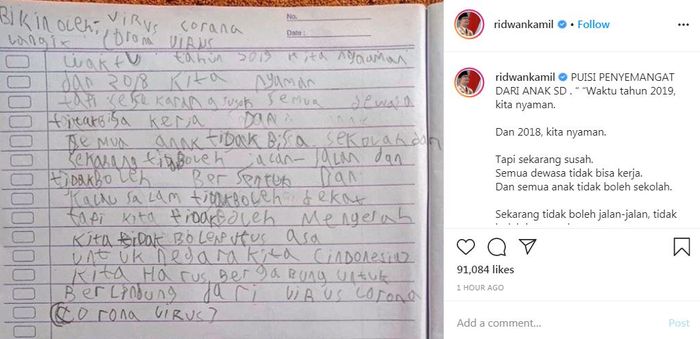 BIKIN OLEH: VIRUS corona
Langix Corona VIRUS
No.
Date :
waktu tahun 2019 kita nyaman
dan 2018 kita nyaman
tapi sekarang susah semua dewasa
tidakbisa kerja Dan
semua anak tidak Bisa sekolah dan
sekarang tidboleh jalan-Jalan dan
tidakboleh Bersentuh Dan
Kalau salam tidakboleh dekat
tapi kita tidakboleh Mengerah
Kita tidak Boleh Putus asa
untuk negara kita (indonesia)
Kita Harus Bergabung untuk
Berlindung dari viBus corona
(Corona virus)
ridwankamil • Follow
ridwankamil PUISI PENYEMANGAT
DARI ANAK SD . “ “Waktu tahun 2019,
kita nyaman.
Dan 2018, kita nyaman.
Tapi sekarang susah.
Semua dewasa tidak bisa kerja.
Dan semua anak tidak boleh sekolah.
Sekarang tidak boleh jalan-jalan, tidak
91,084 likes
1 HOUR AGO
Add a comment...
Post